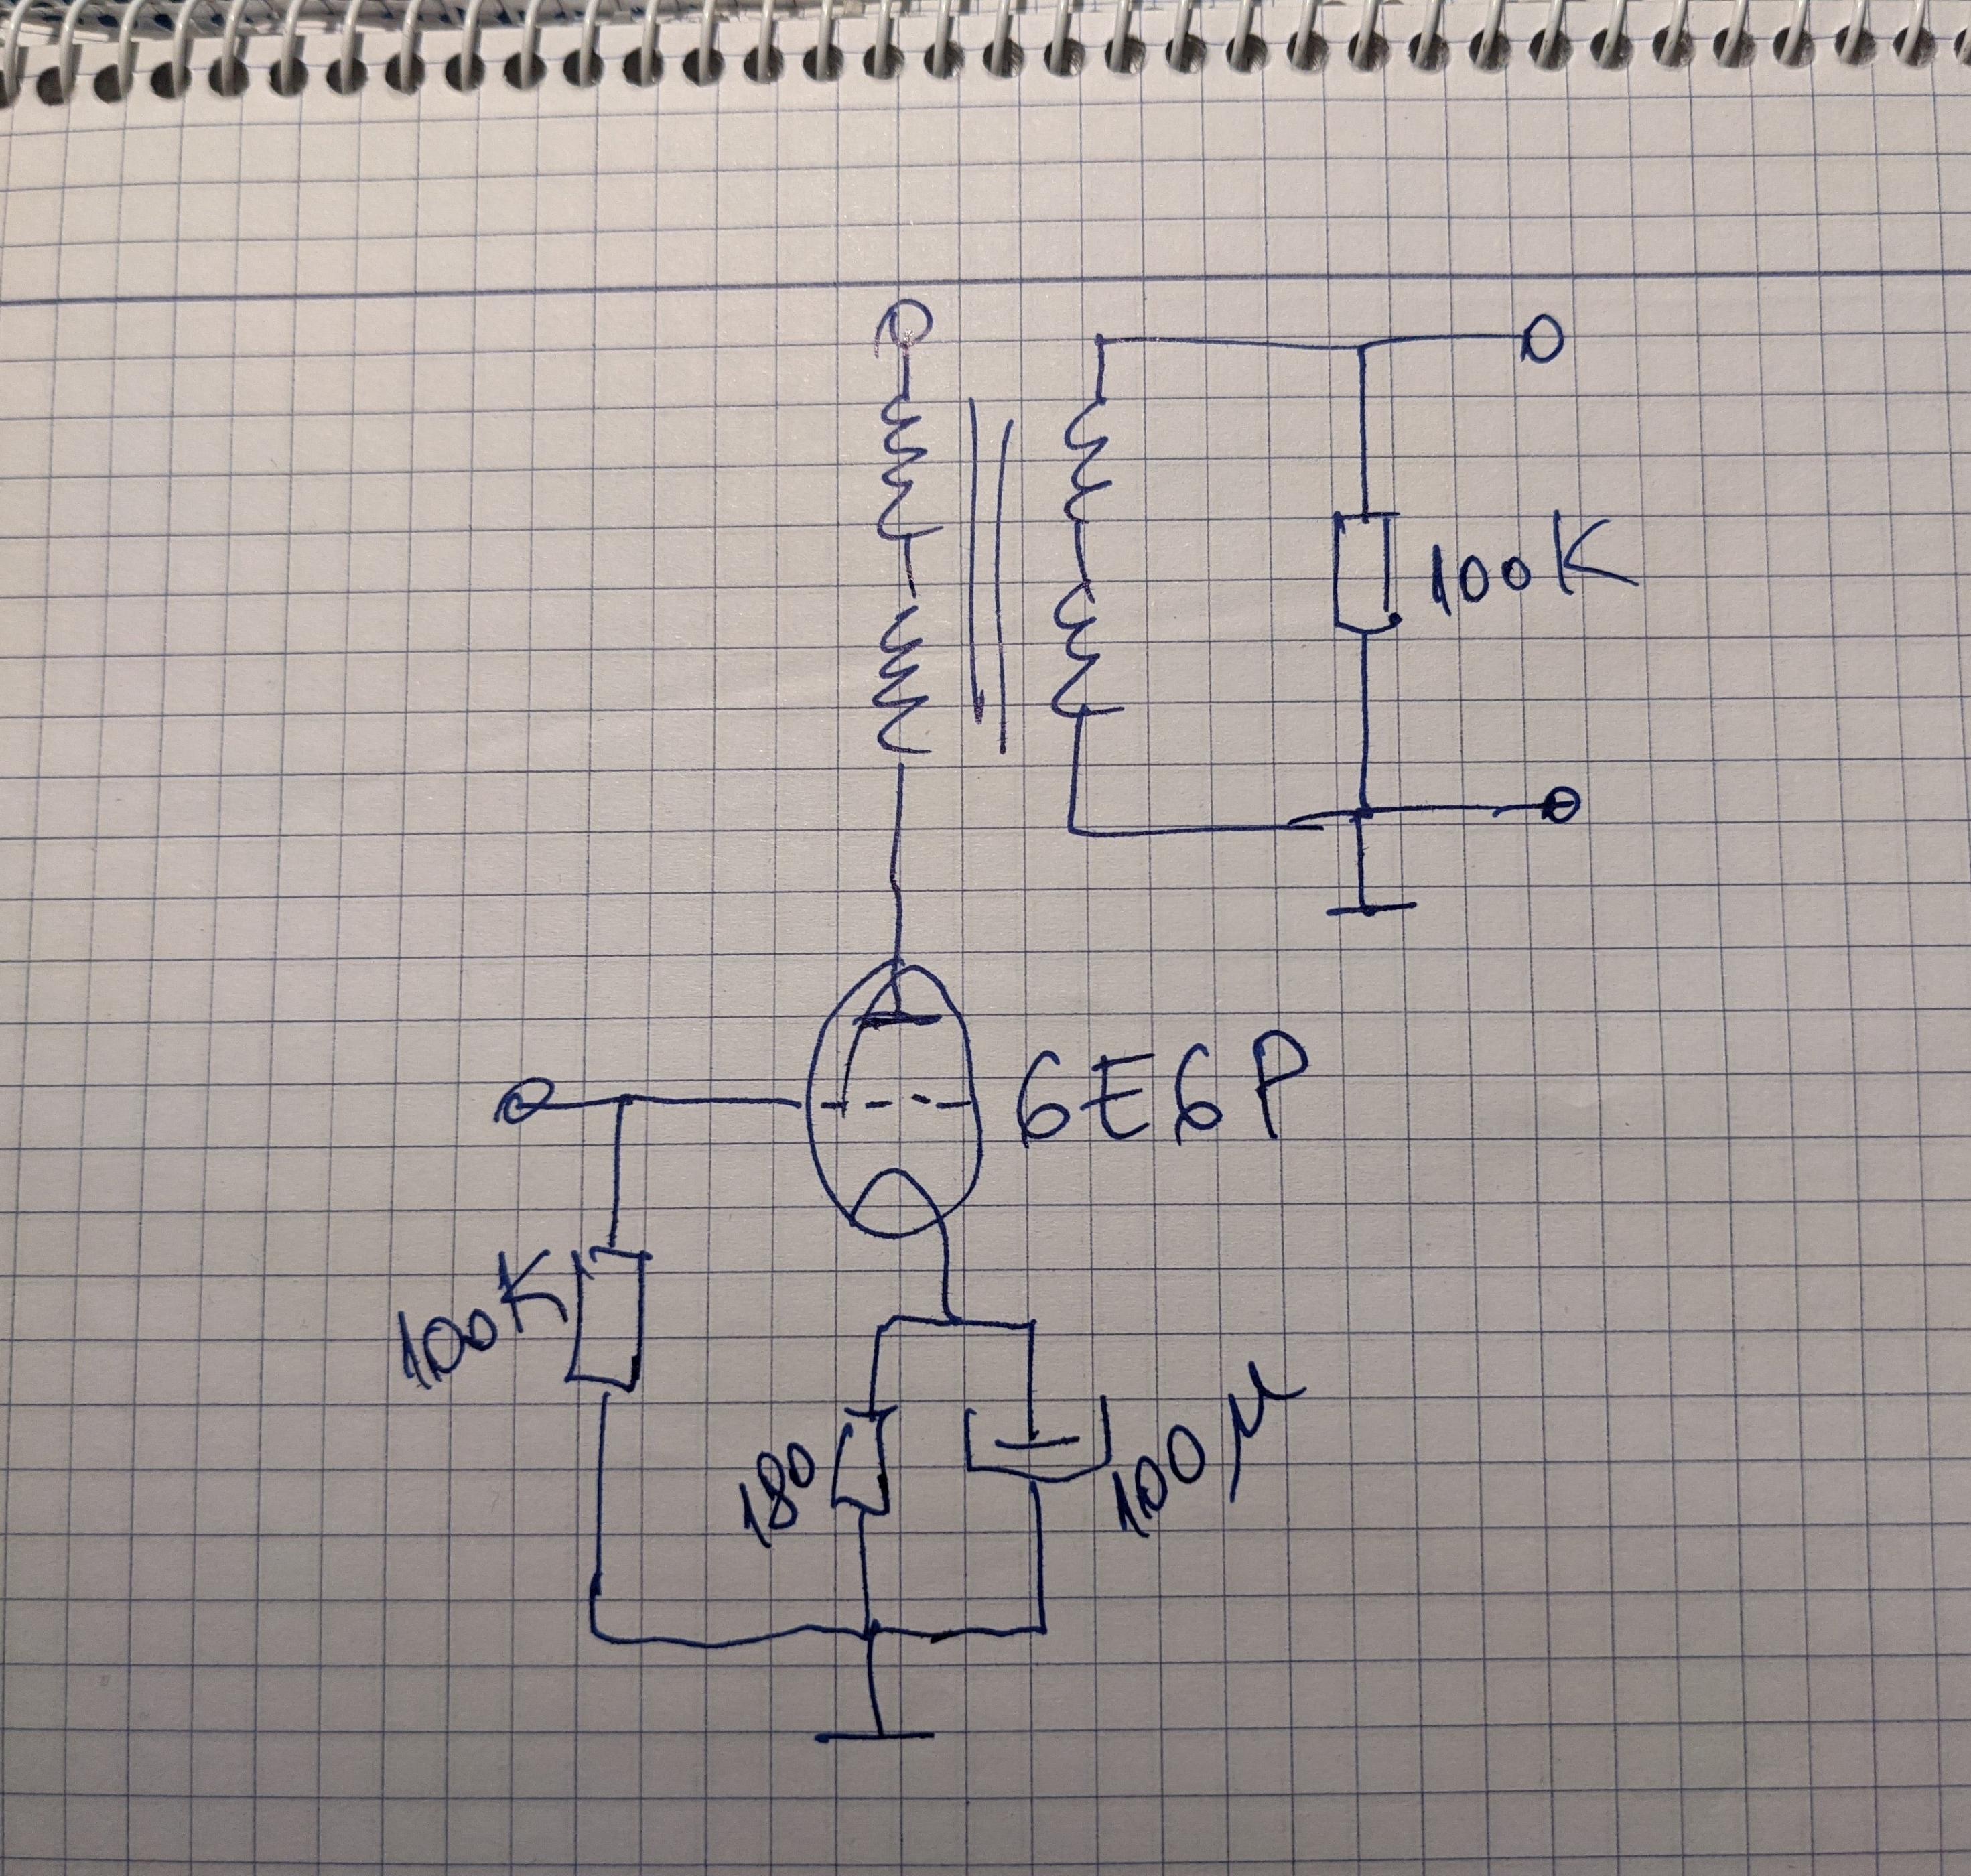 100K
6E6P
100K
180
100μ